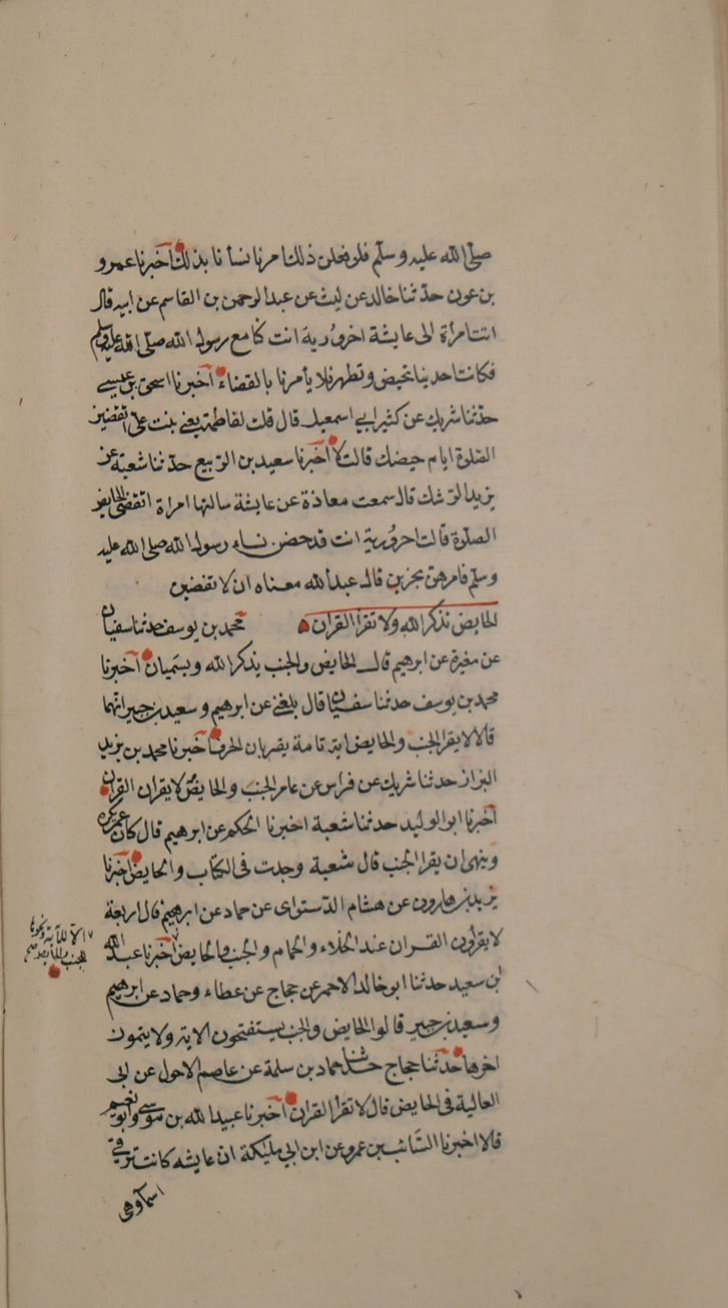 صلى الله عليه وسلم فلو فعلن ذلك امرنا نسأنا بذلك اخبرنا عمرو
بن عون حدثنا خالد عن ليث عن عبد الرحمن بن القاسم عن ابيه قال
اتت امراة الى عايشة احرورية انت كنا مع رسول الله صلى الله عليه وسلم
فكانت احدينا تحيض وتطهر فلا يأمرنا بالقضاء اخبرنا اسحق بن عيسى
حدثنا شريك عن كثير ابي اسمعيل قال قلت لفاطمة يعني بنت علي اتقضين
الصلوة ايام حيضك قالت لا اخبرنا سعيد بن الربيع حدثنا شعبة عن
يزيد الرشك قال سمعت معاذة عن عايشة سالتها امراة اتقضي الحايض
الصلوة قالت احرورية انت قد حضن نساء رسول الله صلى الله عليه
وسلم فامرهن يجزين قال عبد الله معناه ان لا تقضين
الحايض تذكر الله ولا تقرأ القران محمد بن يوسف حدثنا سفيان
عن مغيرة عن ابرهيم قال الحايض والجنب يذكر الله ويسميان اخبرنا
محمد بن يوسف حدثنا سفيان قال بلغني عن ابرهيم وسعيد بن جبير انهما
قالا لا يقرا الجنب والحايض اية تامة يقريان الحرف اخبرنا محمد بن يزيد
البزاز حدثنا شريك عن فراس عن عامر الجنب والحايض لا يقران القران
اخبرنا ابو الوليد حدثنا شعبة اخبرنا الحكم عن ابرهيم قال كان عمر يكره
وينهى ان يقرا الجنب قال شعبة وجدت في الكتاب والحايض اخبرنا
يزيد بن هارون عن هشام الدستواى عن حماد عن ابرهيم قال اربعة
لا يقراون القران عند الخلاء والحمام والجنب والحايض اخبرنا عبد الله
الا الاية ونحوها
للجنب والحايض صح
ابن سعيد حدثنا ابو خالد الاحمر عن حجاج عن عطاء وحماد عن ابرهيم
وسعيد بن جبير قالوا الحايض والجنب يستفتحون الاية ولا يتمون
اخرها حدثنا حجاج حدثنا حماد بن سلمة عن عاصم الاحول عن ابى
العالية في الحايض قال لا تقرا القران اخبرنا عبيد الله بن موسى وابو نعيم
قالا اخبرنا السائب بن عمرو عن ابن ابي مليكة ان عايشه كانت ترقي
اسما وهي